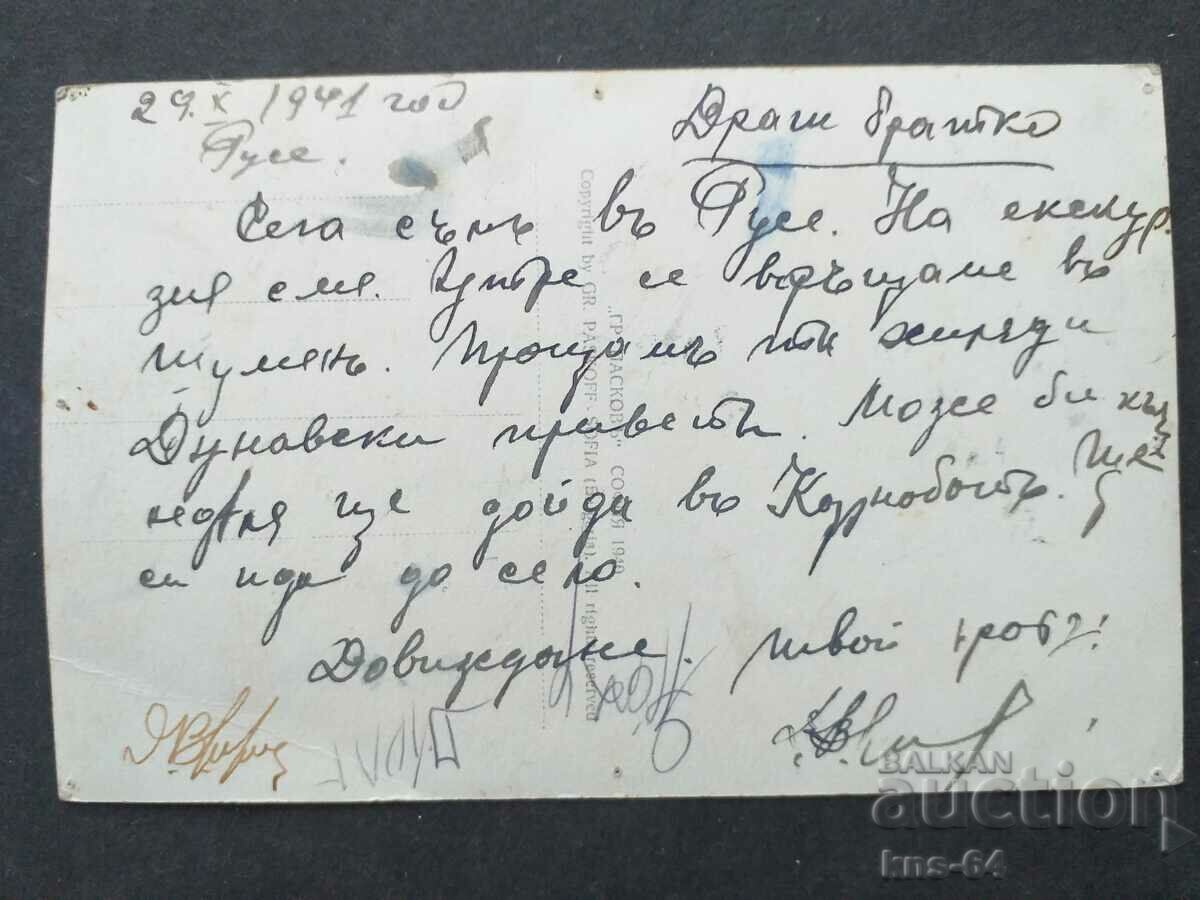 29.X 1941 год
Русе.
Драги братко
Сега съмъ въ Русе. На екскур-
зия сме. Утре се връщаме въ
Шуменъ. Пращамъ ти хиляди
Дунавски привети. Може би къмъ
неделя ще дойда въ Карнобатъ. Ще
си ида до село.
Довиждане. твой
"ГР. ПАСКОВЪ" СОФИЯ 1940
Copyright by GR. PASKOFF-SOFIA (Bulgaria). All rights reserved
BALKAN
auction
kns-64